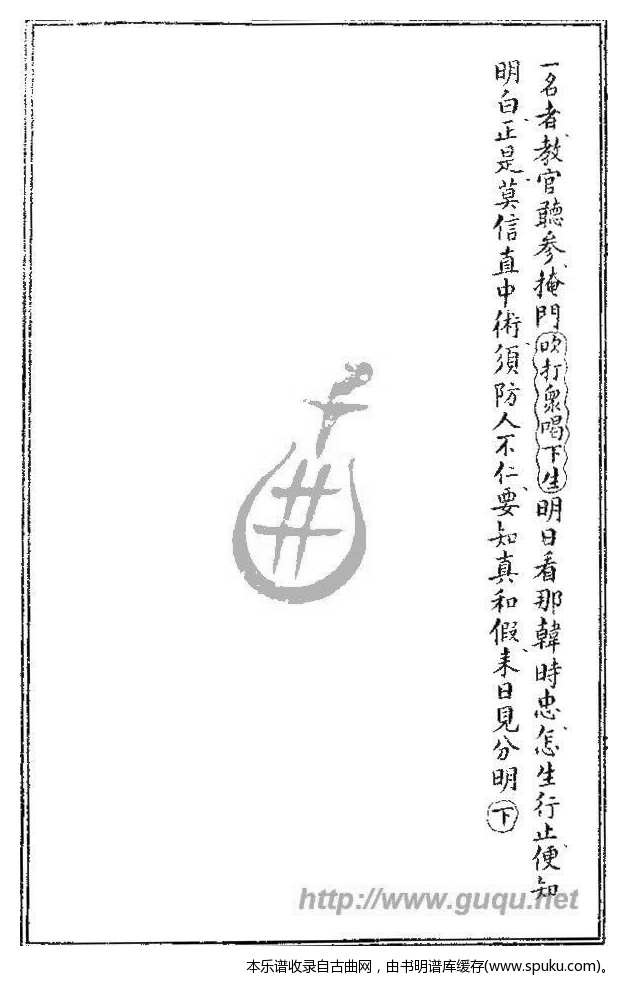 一名者教官聽參掩門吹打衆喝下生明日看那韓時忠怎生行止便知
明白正是莫信直中術須防人不仁要知真和假来日見分明下
http://www.guqu.net
本乐谱收录自古曲网，由书明谱库缓存(www.spuku.com)。